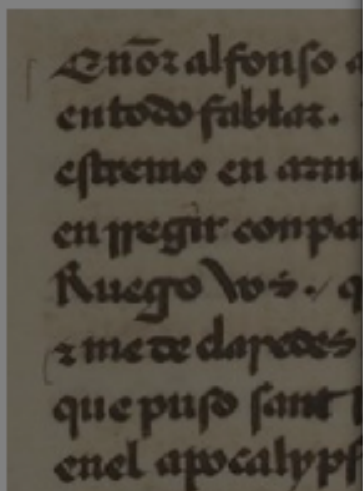 Señor alfonso a
en todo fablar.
estremo en arm
en rregir conpa
Ruego vos. q
z me declaredes
que puso sant
enel apocalyps